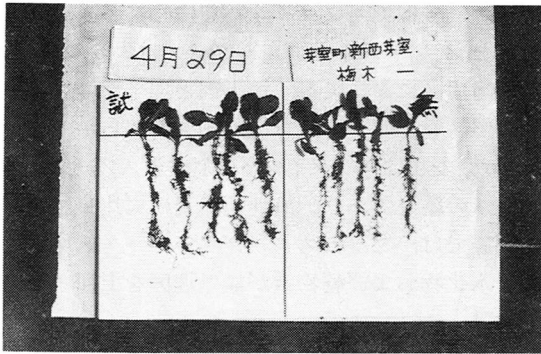 4月29日
芽室町新西芽室
梅木 一
試
無